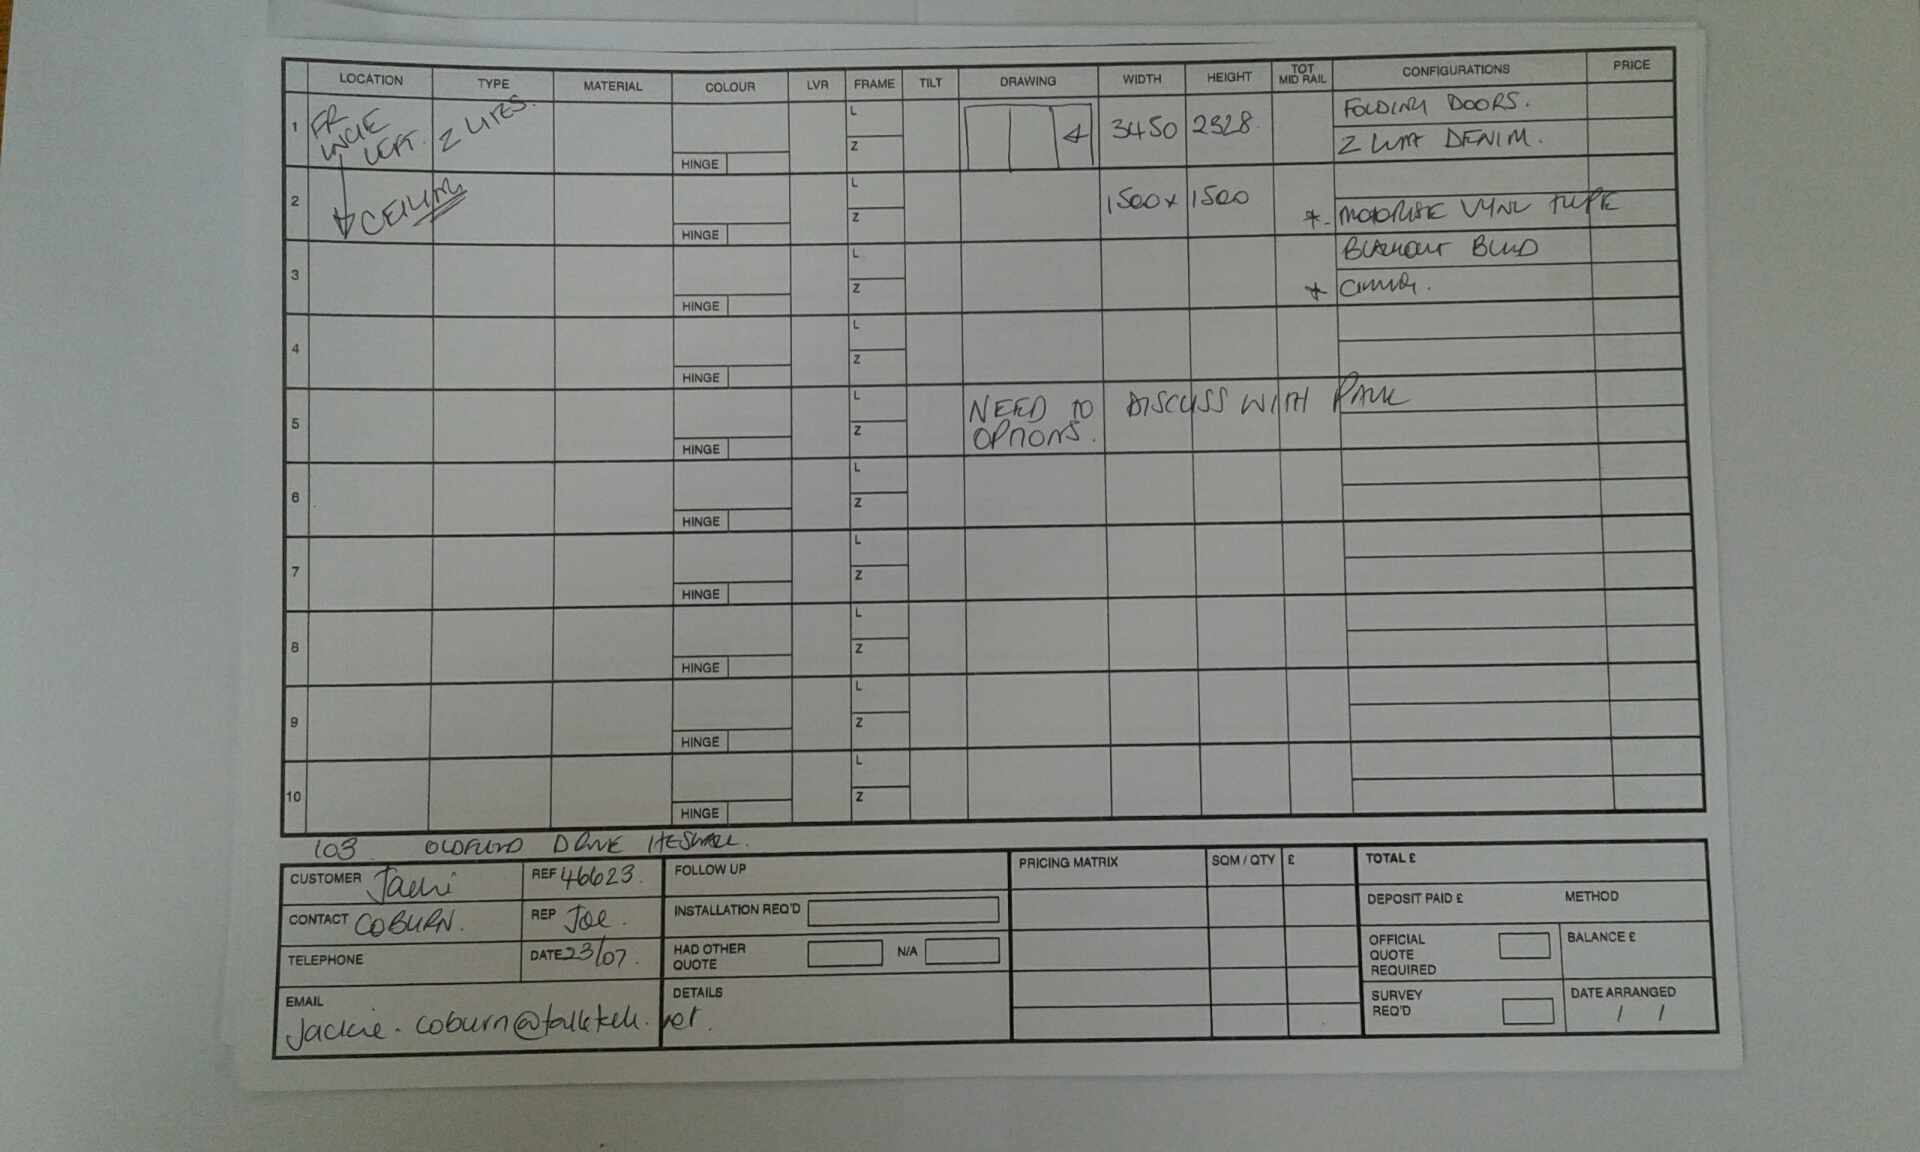 LOCATION TYPE MATERIAL COLOUR LVR FRAME TILT DRAWING WIDTH HEIGHT TOT MID RAIL CONFIGURATIONS PRICE
1 FR LEFT. L 3450 2328 FOLDING DOORS.
HINGE Z DENIM.
2 CEILING L 1500 x 1500
HINGE Z *
3 L BLACKOUT BLIND
HINGE Z *
4 L
HINGE Z
5 L NEED TO DISCUSS WITH PAUL
HINGE Z OPTIONS.
6 L
HINGE Z
7 L
HINGE Z
8 L
HINGE Z
9 L
HINGE Z
10 L
HINGE Z
103 DRIVE HESWALL.
CUSTOMER Jacki REF 46623.
CONTACT COBURN. REP Joe.
TELEPHONE DATE 23/07.
EMAIL
jackie.coburn@talktalk.net.
FOLLOW UP
INSTALLATION REQ'D
HAD OTHER QUOTE N/A
DETAILS
PRICING MATRIX SQM / QTY £
TOTAL £
DEPOSIT PAID £ METHOD
OFFICIAL QUOTE REQUIRED BALANCE £
SURVEY REQ'D DATE ARRANGED
/ /